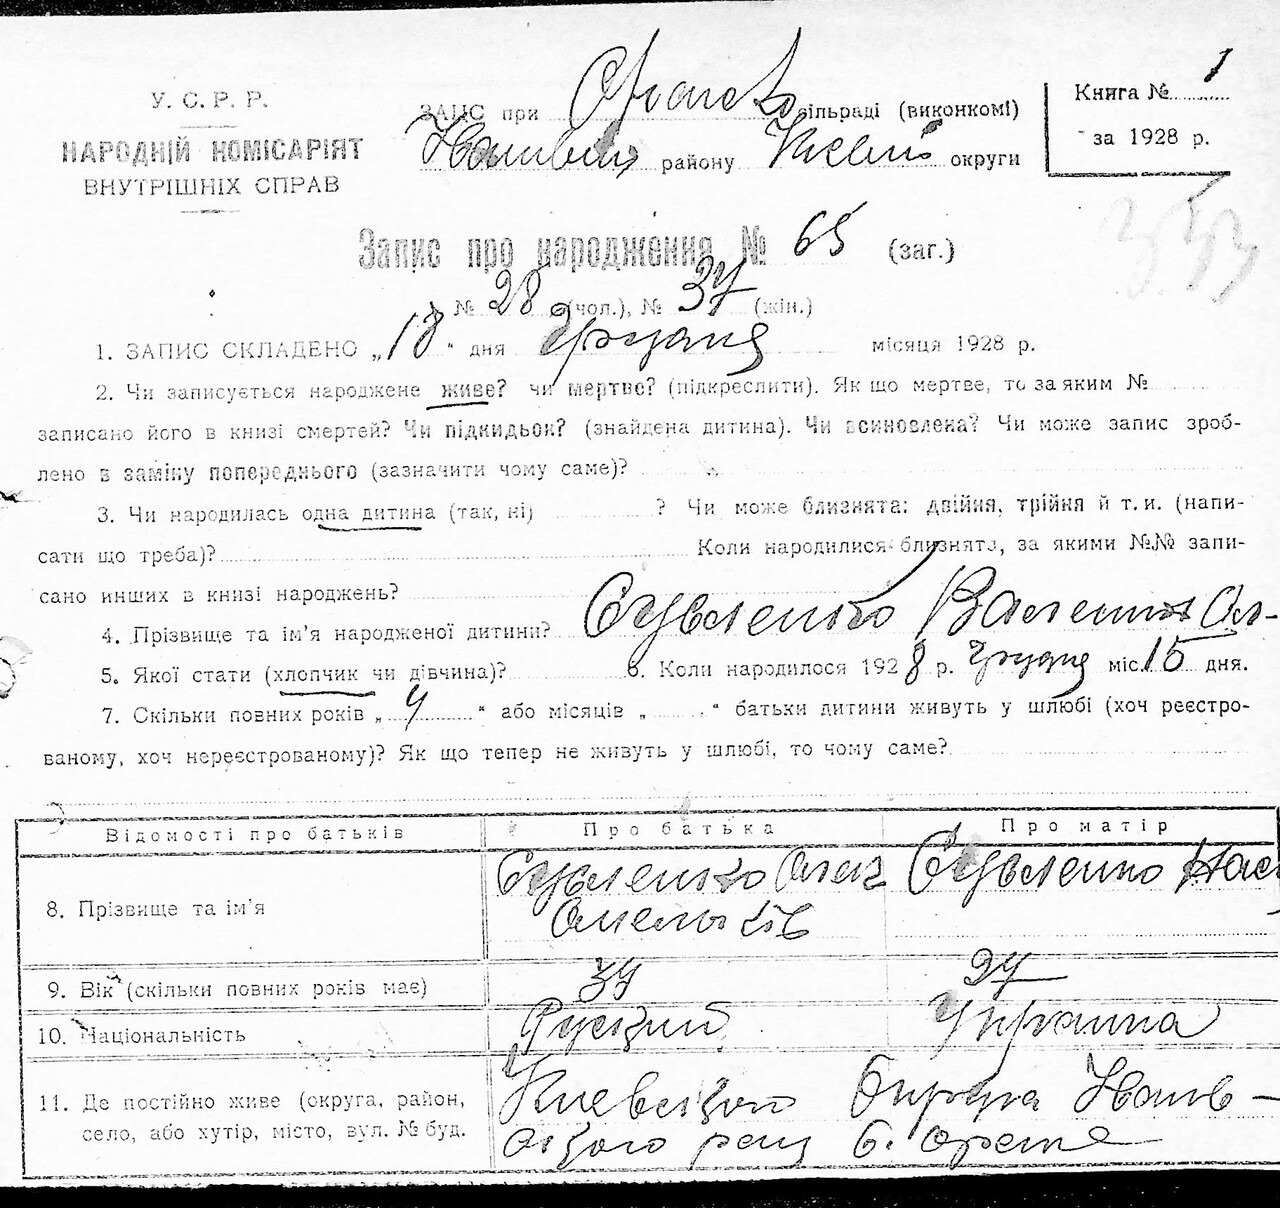 У. С. Р. Р.
НАРОДНІЙ КОМІСАРІЯТ
ВНУТРІШНІХ СПРАВ
ЗАПИС при сільраді (виконкомі)
району округи
Книга № 1
за 1928 р.
Запис про народження № 65 (заг.)
№ 28 (чол.), № 37 (жін.)
1. ЗАПИС СКЛАДЕНО „18“ дня Грудня місяця 1928 р.
2. Чи записується народжене живе? чи мертве? (підкреслити). Як що мертве, то за яким №
записано його в книзі смертей? Чи підкидьок? (знайдена дитина). Чи всиновлена? Чи може запис зроб-
лено в заміну попереднього (зазначити чому саме)?
3. Чи народилась одна дитина (так, ні) ? Чи може близнята: двійня, трійня й т. и. (напи-
сати що треба)? Коли народилися близнята, за якими №№ запи-
сано инших в книзі народжень?
4. Прізвище та ім'я народженої дитини?
5. Якої стати (хлопчик чи дівчина)? 6. Коли народилося 1928 р. Грудня міс. 15 дня.
7. Скільки повних років „ 4 “ або місяців „ “ батьки дитини живуть у шлюбі (хоч реєстро-
ваному, хоч нереєстрованому)? Як що тепер не живуть у шлюбі, то чому саме?
Відомості про батьків Про батька Про матір
8. Прізвище та ім'я
9. Вік (скільки повних років має) 27
10. Національність Руский Украина
11. Де постійно живе (округа, район, Киевского
село, або хутір, місто, вул. № буд.